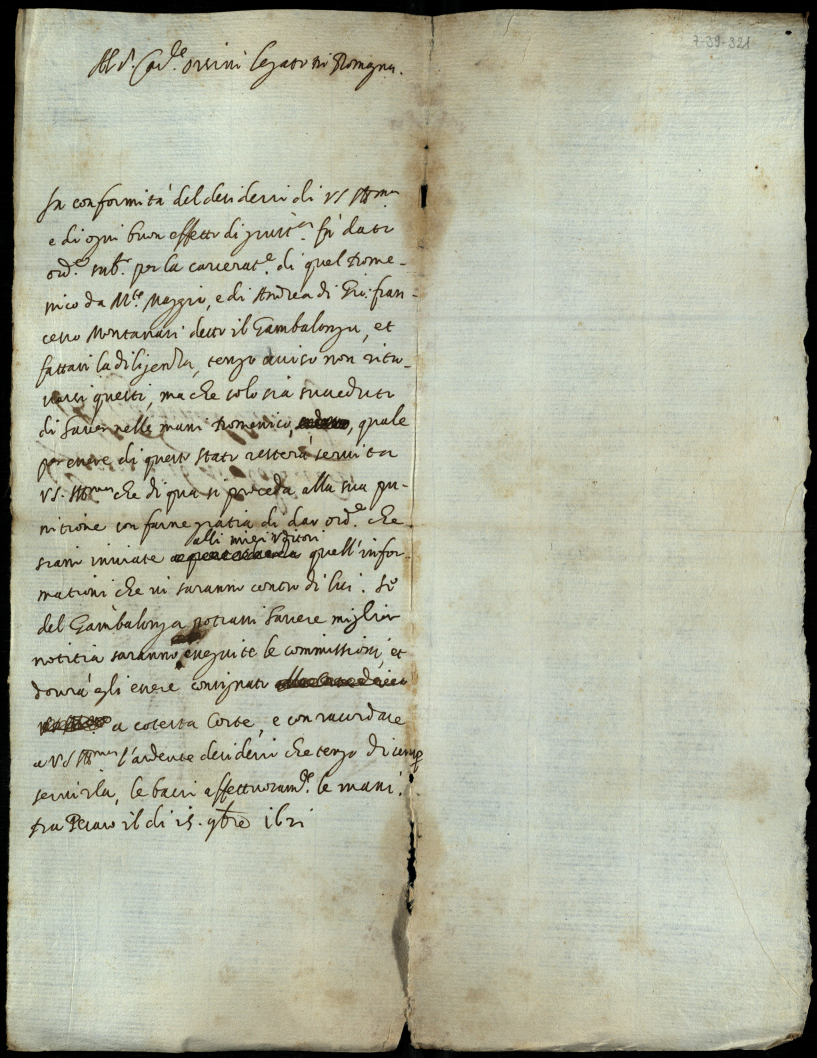 7-39-321
Al S.r Card.le Orsini legato di Romagna.
In conformità del desiderio di VS Ill.ma
e di ogni buon effetto di giust.a fù dato
ord.e sub.o per la carcerat.e di quel Dome-
nico da M.te Maggio, e di Andrea di Gio: fran-
cesco Montanari detto il Gambalonga, et
fattasi la diligenza, tengo aviso non ritro-
varsi questi, ma che solo sia succeduto
di haver nelle mani Domenico, quale
per essere di questo stato resterà servita
VS. Ill.ma che di qua si proceda alla sua pu-
nitione con farne gratia di dar ord.e che
alli miei Uditori
siano inviate quell'infor-
mationi che vi saranno contro di lui. Se
del Gambalonga potrassi havere miglior
notitia saranno eseguite le commissioni, et
dovrà egli essere consignato
a cotesta Corte, e con ricordare
a VS Ill.ma l'ardente desiderio che tengo di sempre
servirla, le bacio affettuosam.te le mani.
Pesaro il di 15. 9bre 1621